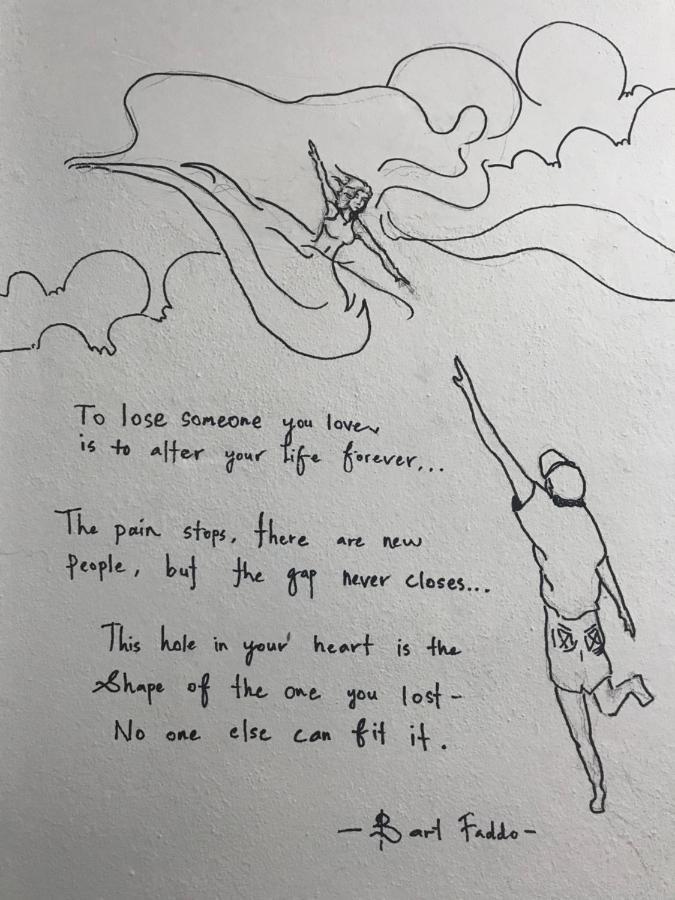 To lose someone you love
is to alter your life forever...
The pain stops, there are new
People, but the gap never closes...
This hole in your heart is the
Shape of the one you lost -
No one else can fit it.
- Bart Faddo -